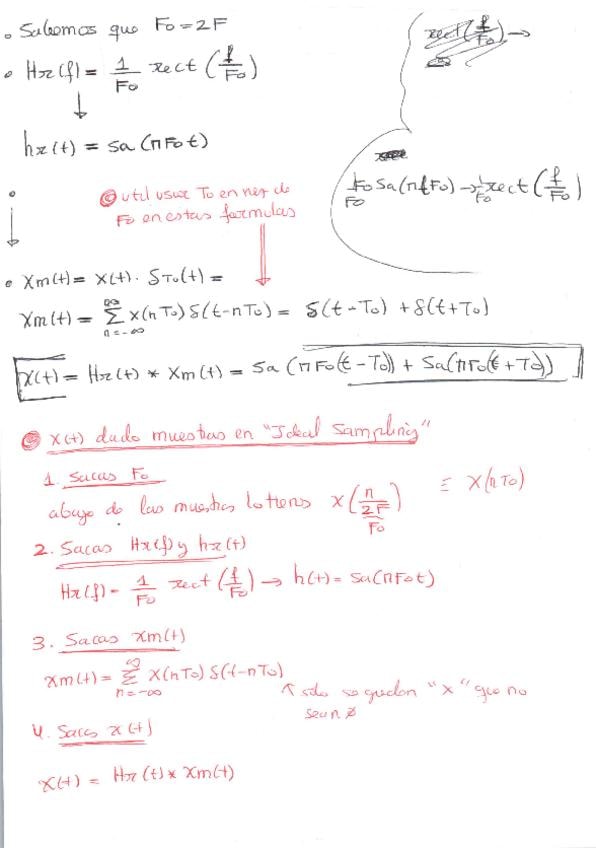 • Sabemos que F₀ = 2F
• Hr(f) = 1/F₀ rect (f/F₀)
rect(f/F₀) →
↓
hr(t) = Sa (πF₀t)
1/F₀ F₀ Sa(πtF₀) → 1/F₀ rect (f/F₀)
util usar T₀ en vez de
F₀ en estas formulas
• Xm(t) = x(t) · δT₀(t) =
Xm(t) = ∞Σn=-∞ x(nT₀) δ(t-nT₀) = δ(t-T₀) + δ(t+T₀)
x(t) = Hr(t) * Xm(t) = Sa (πF₀(t-T₀)) + Sa(πF₀(t+T₀))
x(t) dado muestras en "Ideal Sampling"
1. Sacas F₀
abajo de las muestras lo tienes x(n/2F) ≡ x(nT₀)
F₀
2. Sacas Hr(f) y hr(t)
Hr(f) = 1/F₀ rect (f/F₀) → h(t) = Sa(πF₀t)
3. Sacas xm(t)
xm(t) = ∞Σn=-∞ x(nT₀) δ(t-nT₀)
↑ solo se quedan "x" que no
sean ∅
4. Sacas x(t)
x(t) = Hr(t) * xm(t)